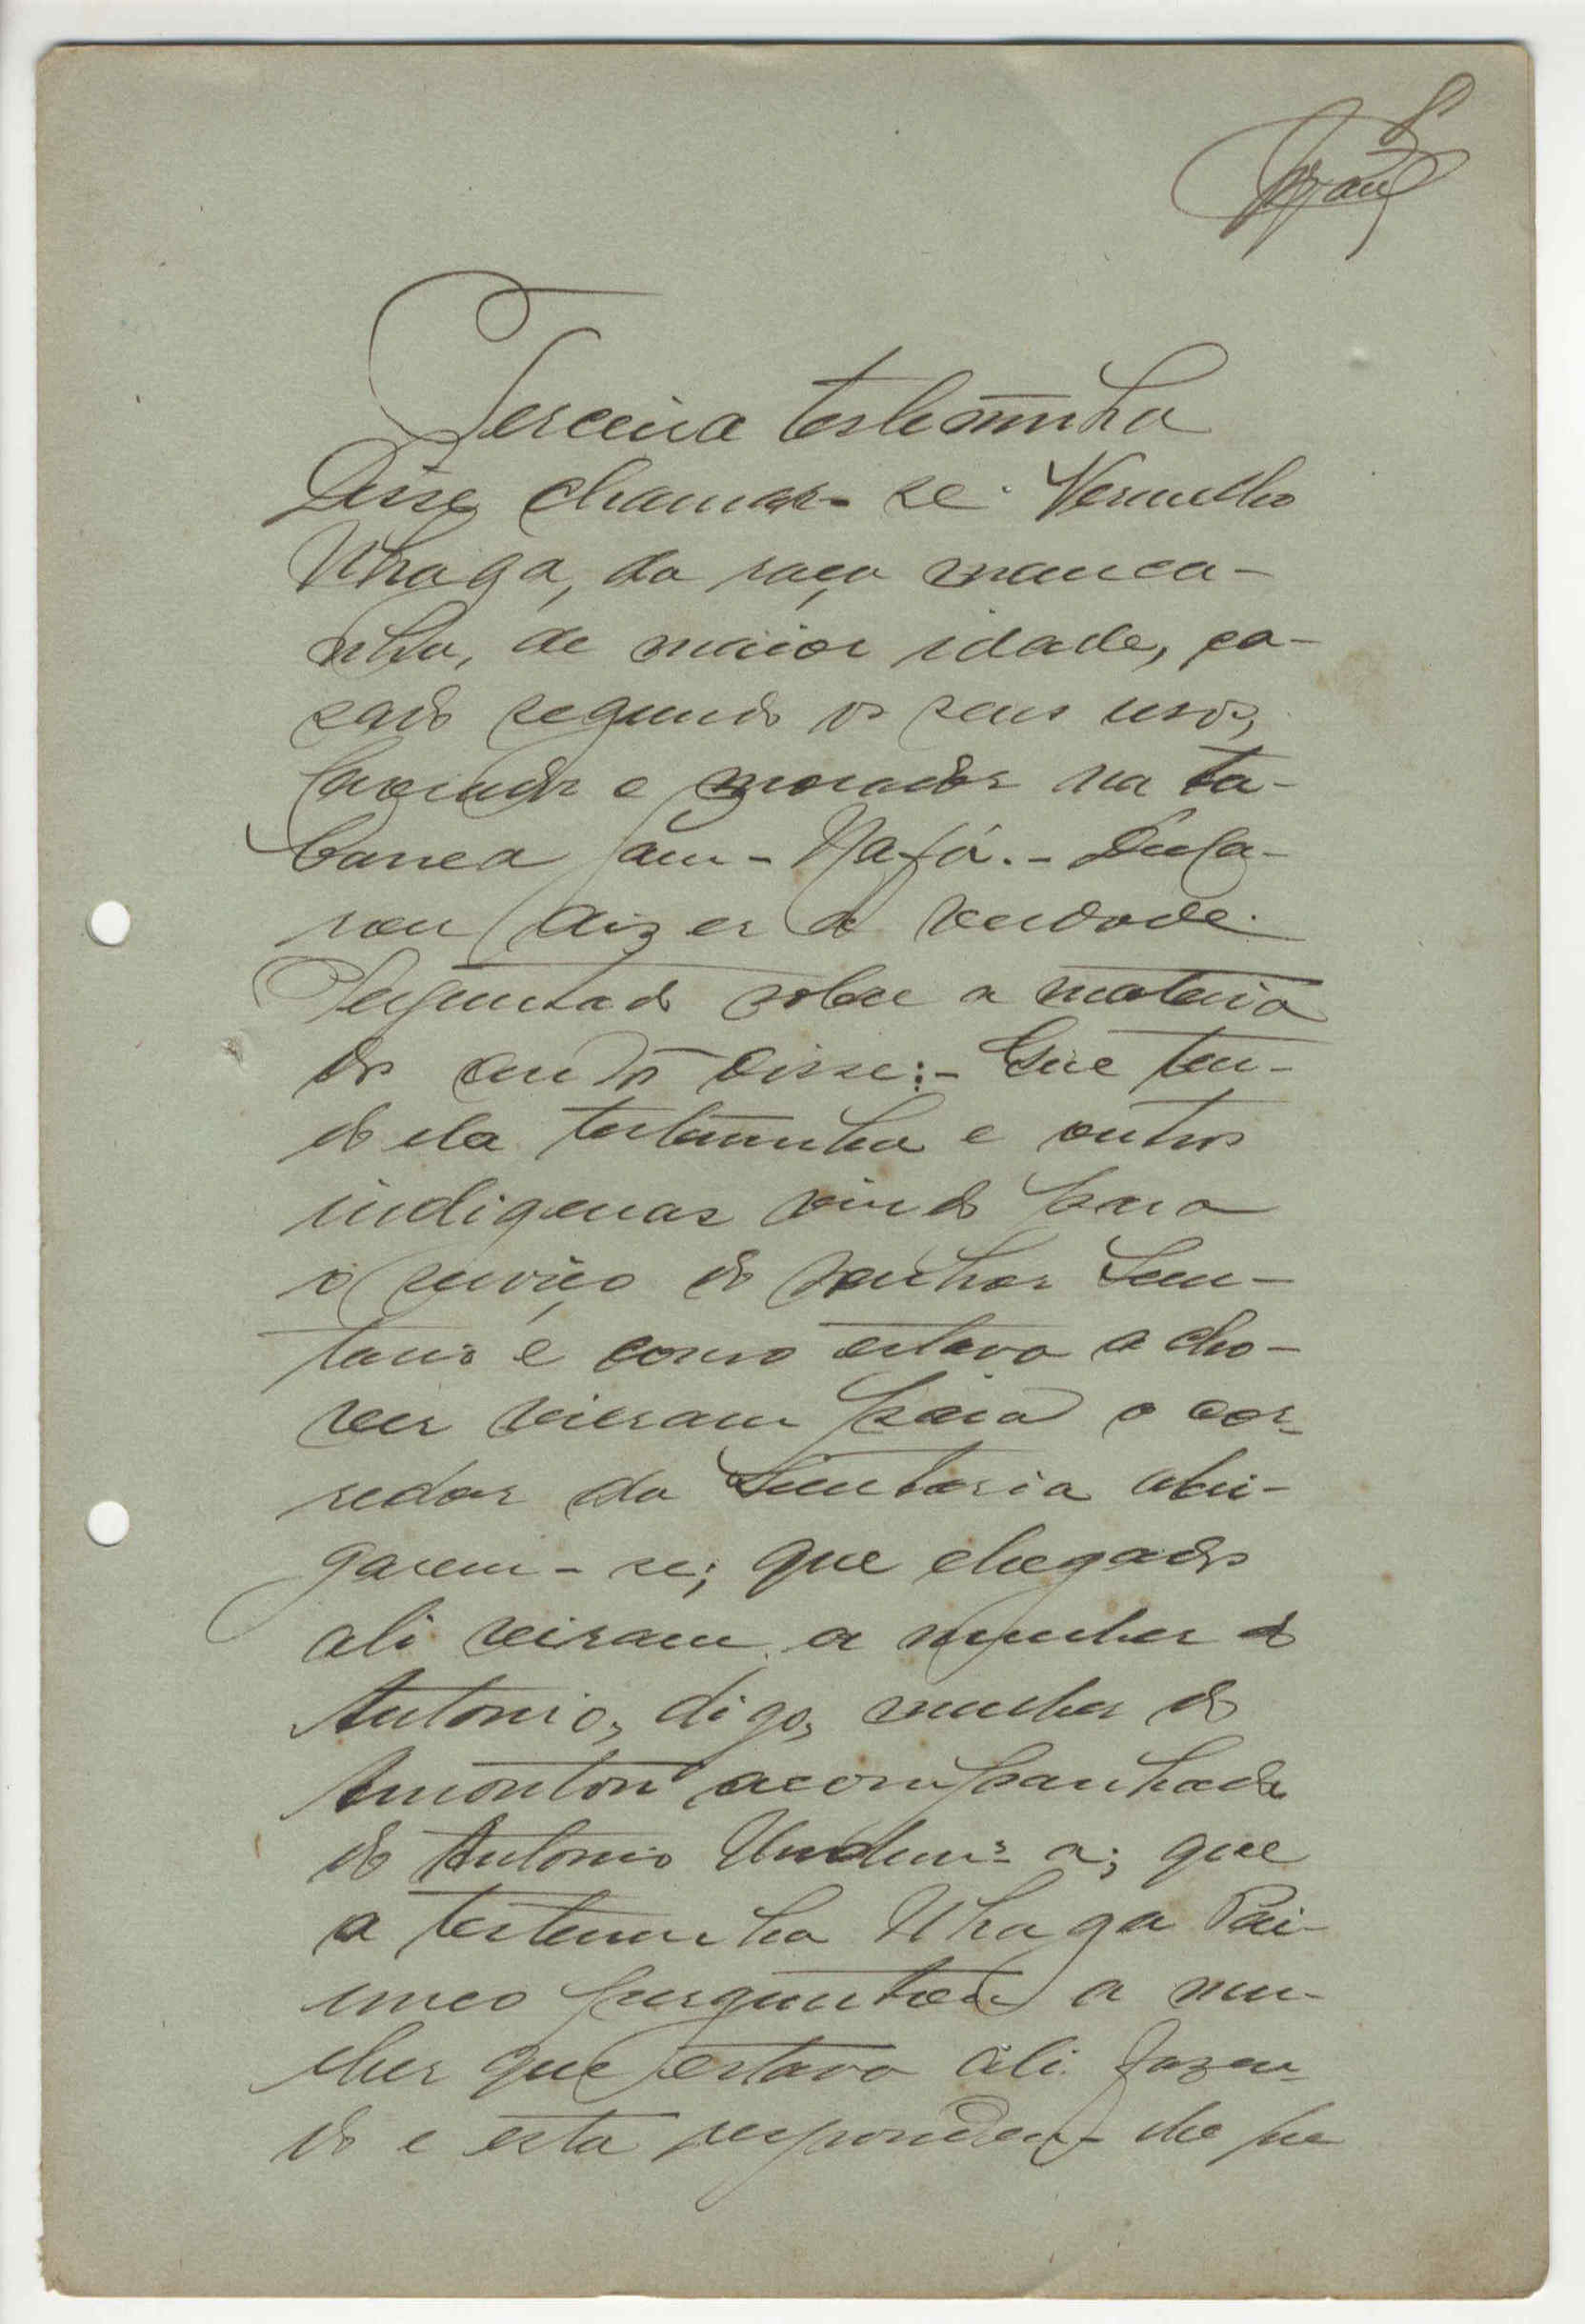 Terceira testemunha
Disse chamar-se Vermelho
Nhaga, da raça manca-
nha, de maior idade, ca-
sado segundo os seus usos,
lavrador e morador na ta-
banca Jam-Nafá.- Decla-
rou dizer a verdade.
Perguntado sobre a materia
do disse:- Que ten-
do ela testemunha e outros
indigenas vindo para
o serviço do senhor Sen-
tano e como estava a cho-
ver vieram para o cor-
redor da abri-
garem-se; que chegados
ali viram a mulher do
Antonio, digo, mulher do
Amonton acompanhada
do Antonio a; que
a testemunha Nhaga Pri-
meo perguntou a mu-
lher que estava ali fazen-
do e esta respondeu-lhe que